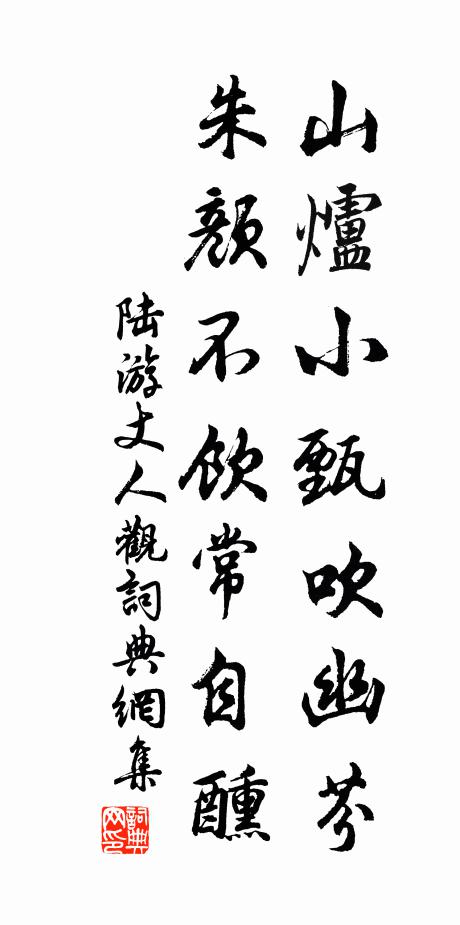 山爐小甄吹幽芬
朱顏不飲常自醺
陸游丈人觀詞典網集
詞典网印